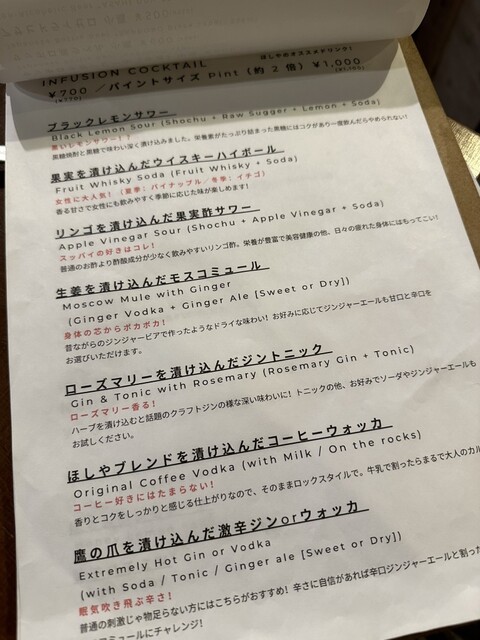 INFUSION COCKTAIL
ほしやのオススメドリンク!
¥700 ／パイントサイズ Pint (約 2 倍) ¥1,000
(¥770)
ブラックレモンサワー
Black Lemon Sour (Shochu + Raw Sugger + Lemon + Soda)
黒いレモンサワー！？
黒糖焼酎と黒糖で味わい深く漬け込みました。栄養素がたっぷり詰まった黒糖にはコクがあり一度飲んだらやめられない!
果実を漬け込んだウイスキーハイボール
Fruit Whisky Soda (Fruit Whisky + Soda)
女性に大人気! (夏季：パイナップル／冬季：イチゴ)
香る甘さで女性にも飲みやすく季節に応じた味が楽しめます!
リンゴを漬け込んだ果実酢サワー
Apple Vinegar Sour (Shochu + Apple Vinegar + Soda)
スッパイの好きはコレ!
普通のお酢より酢酸成分が少なく飲みやすいリンゴ酢。栄養が豊富で美容健康の他、日々の疲れた身体にはもってこい!
生姜を漬け込んだモスコミュール
Moscow Mule with Ginger
(Ginger Vodka + Ginger Ale [Sweet or Dry])
身体の芯からポカポカ!
昔ながらのジンジャービアで作ったようなドライな味わい! お好みに応じてジンジャーエールも甘口と辛口を
お選びいただけます。
ローズマリーを漬け込んだジントニック
Gin & Tonic with Rosemary (Rosemary Gin + Tonic)
ローズマリー香る!
ハーブを漬け込むと話題のクラフトジンの様な深い味わいに! トニックの他、お好みでソーダやジンジャーエールも
お試しください。
ほしやブレンドを漬け込んだコーヒーウォッカ
Original Coffee Vodka (with Milk / On the rocks)
コーヒー好きにはたまらない!
香りとコクをしっかりと感じる仕上がりなので、そのままロックスタイルで。牛乳で割ったらまるで大人のカル
鷹の爪を漬け込んだ激辛ジンorウォッカ
Extremely Hot Gin or Vodka
(with Soda / Tonic / Ginger ale [Sweet or Dry])
眠気吹き飛ぶ辛さ!
普通の刺激じゃ物足らない方にはこちらがおすすめ! 辛さに自信があれば辛口ジンジャーエールと割った
ミュールにチャレンジ!